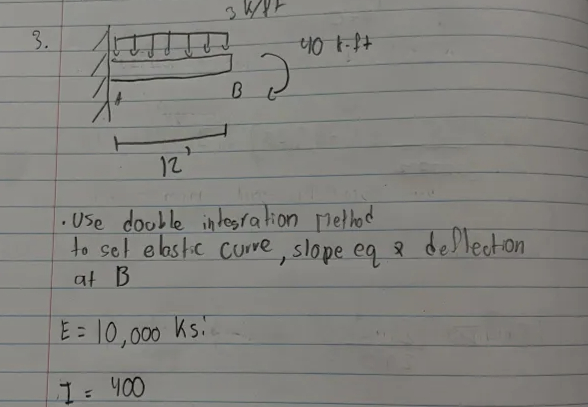 3 k/ft
3.
40 k-ft
A
B
12'
• Use double integration Method
to get elastic curve, slope eq & deflection
at B
E = 10,000 Ksi
I = 400